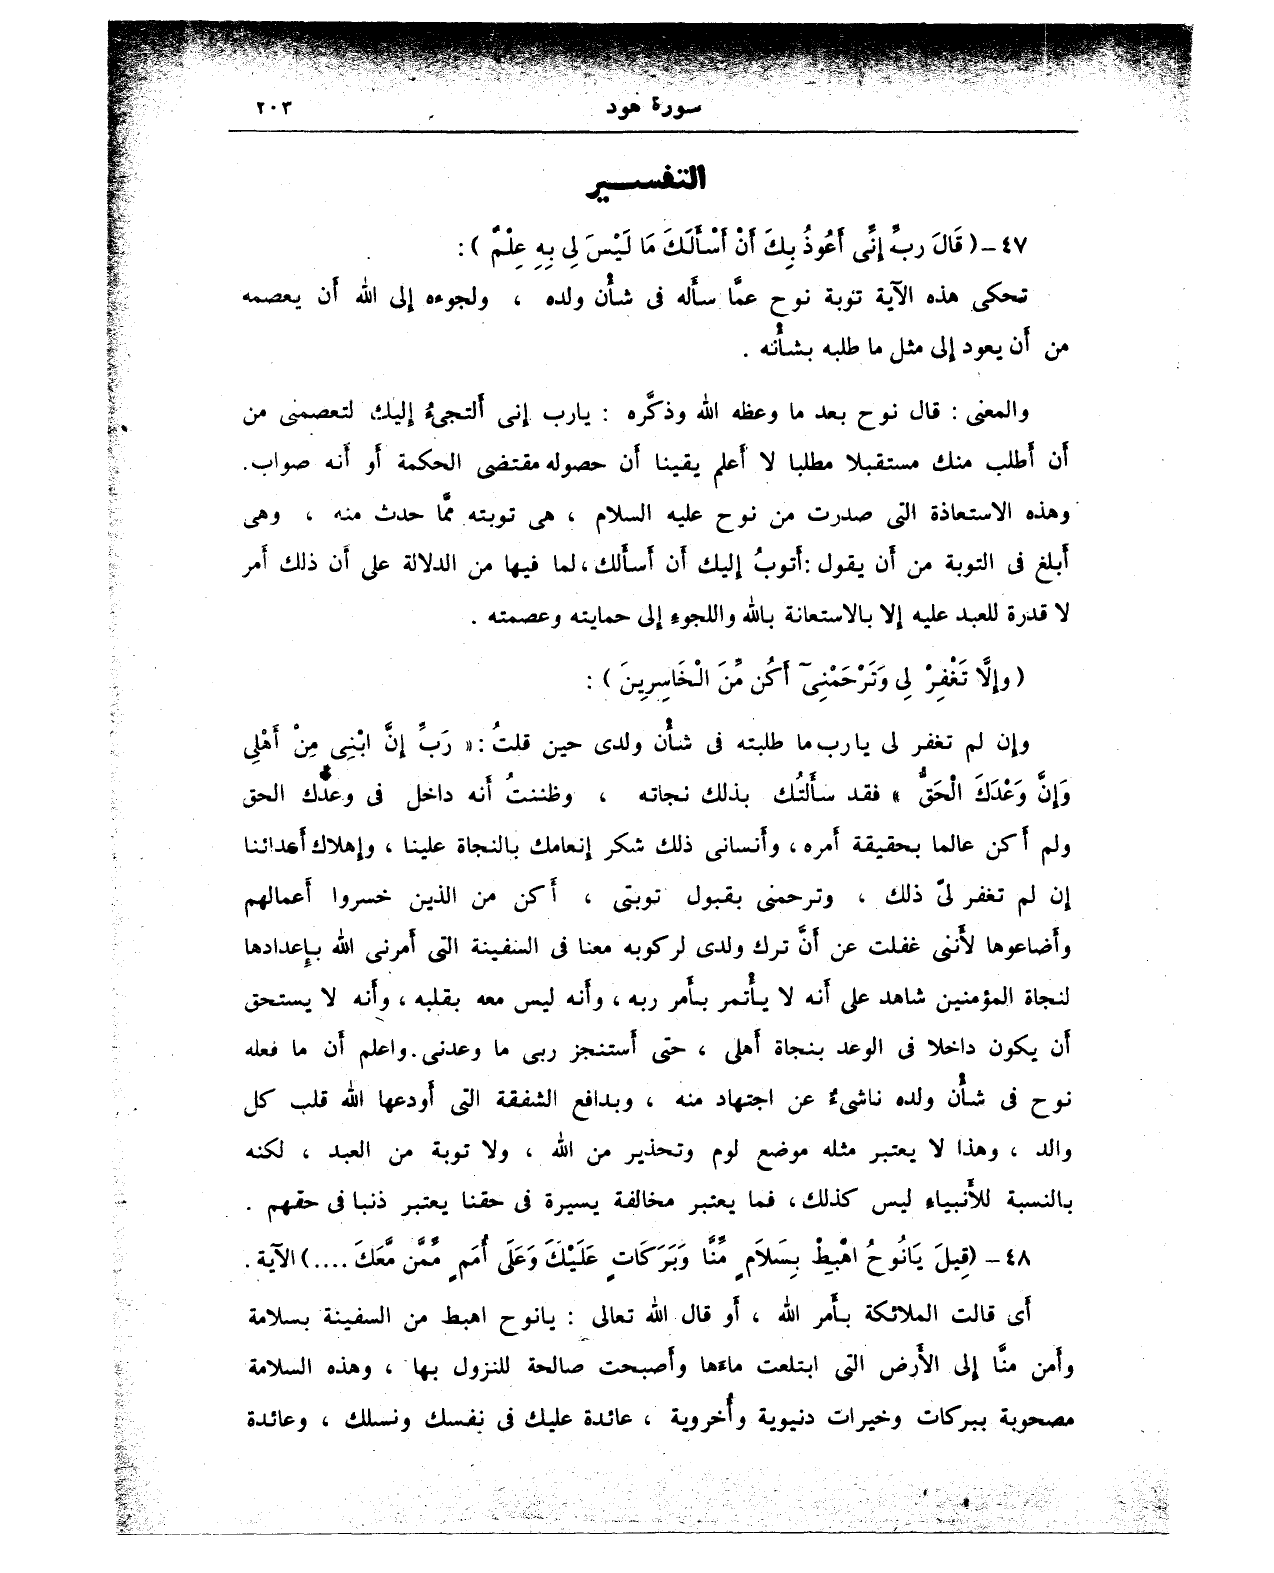 سورة هود ٢٠٣
التفسير
٤٧ – ( قَالَ رَبِّ إِنِّى أَعُوذُ بِكَ أَنْ أَسْأَلَكَ مَا لَيْسَ لِى بِهِ عِلْمٌ ) :
تحكى هذه الآية توبة نوح عمَّا سأله فى شأْن ولده ، ولجوءه إلى الله أن يعصمه
من أن يعود إلى مثل ما طلبه بشأْنه .
والمعنى : قال نوح بعد ما وعظه الله وذكَّره : يارب إنى ألتجىءُ إليك لتعصمنى من
أن أطلب منك مستقبلا مطلبا لا أعلم يقينا أن حصوله مقتضى الحكمة أو أنه صواب.
وهذه الاستعاذة التى صدرت من نوح عليه السلام ، هى توبته ممَّا حدث منه ، وهى
أبلغ فى التوبة من أن يقول : أتوبُ إليك أن أسألك ، لما فيها من الدلالة على أن ذلك أمر
لا قدرة للعبد عليه إلا بالاستعانة بالله واللجوء إلى حمايته وعصمته .
( وإِلَّا تَغْفِرْ لِى وَتَرْحَمْنِىٓ أَكُن مِّنَ الْخَاسِرِينَ ) :
وإن لم تغفر لى يارب ما طلبته فى شأْن ولدى حين قلتُ : « رَبِّ إِنَّ ابْنِى مِنْ أَهْلِى
وَإِنَّ وَعْدَكَ الْحَقُّ » فقد سأَلتُك بذلك نجاته ، وظننتُ أنه داخل فى وعدك الحق
ولم أكن عالما بحقيقة أمره ، وأنسانى ذلك شكر إنعامك بالنجاة علينا ، وإهلاك أعدائنا
إن لم تغفر لىّ ذلك ، وترحمنى بقبول توبتى ، أكن من الذين خسروا أعمالهم
وأضاعوها لأننى غفلت عن أنَّ ترك ولدى لركوبه معنا فى السفينة التى أمرنى الله بإعدادها
لنجاة المؤمنين شاهد على أنه لا يأْتمر بأمر ربه ، وأنه ليس معه بقلبه ، وأنه لا يستحق
أن يكون داخلا فى الوعد بنجاة أهلى ، حتى أستنجز ربى ما وعدنى . واعلم أن ما فعله
نوح فى شأْن ولده ناشىءٌ عن اجتهاد منه ، وبدافع الشفقة التى أودعها الله قلب كل
والد ، وهذا لا يعتبر مثله موضع لوم وتحذير من الله ، ولا توبة من العبد ، لكنه
بالنسبة للأنبياء ليس كذلك ، فما يعتبر مخالفة يسيرة فى حقنا يعتبر ذنبا فى حقهم .
٤٨ – (قِيلَ يَانُوحُ اهْبِطْ بِسَلَامٍ مِّنَّا وَبَرَكَاتٍ عَلَيْكَ وَعَلَى أُمَمٍ مِّمَّن مَّعَكَ ....) الآية .
أى قالت الملائكة بأمر الله ، أو قال الله تعالى : يانوح اهبط من السفينة بسلامة
وأمن منَّا إلى الأرض التى ابتلعت ماءها وأصبحت صالحة للنزول بها ، وهذه السلامة
مصحوبة ببركات وخيرات دنيوية وأُخروية ، عائدة عليك فى نفسك ونسلك ، وعائدة